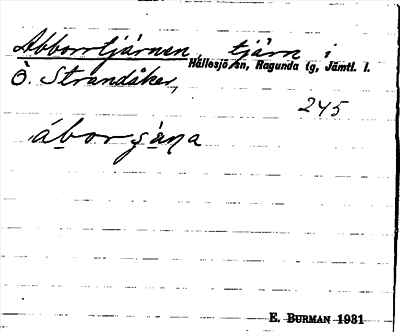 Abborrtjärnen, tjärn i
Hällesjö sn, Ragunda tg, Jämtl. l.
Ö. Strandåker,
245
E. BURMAN 1931